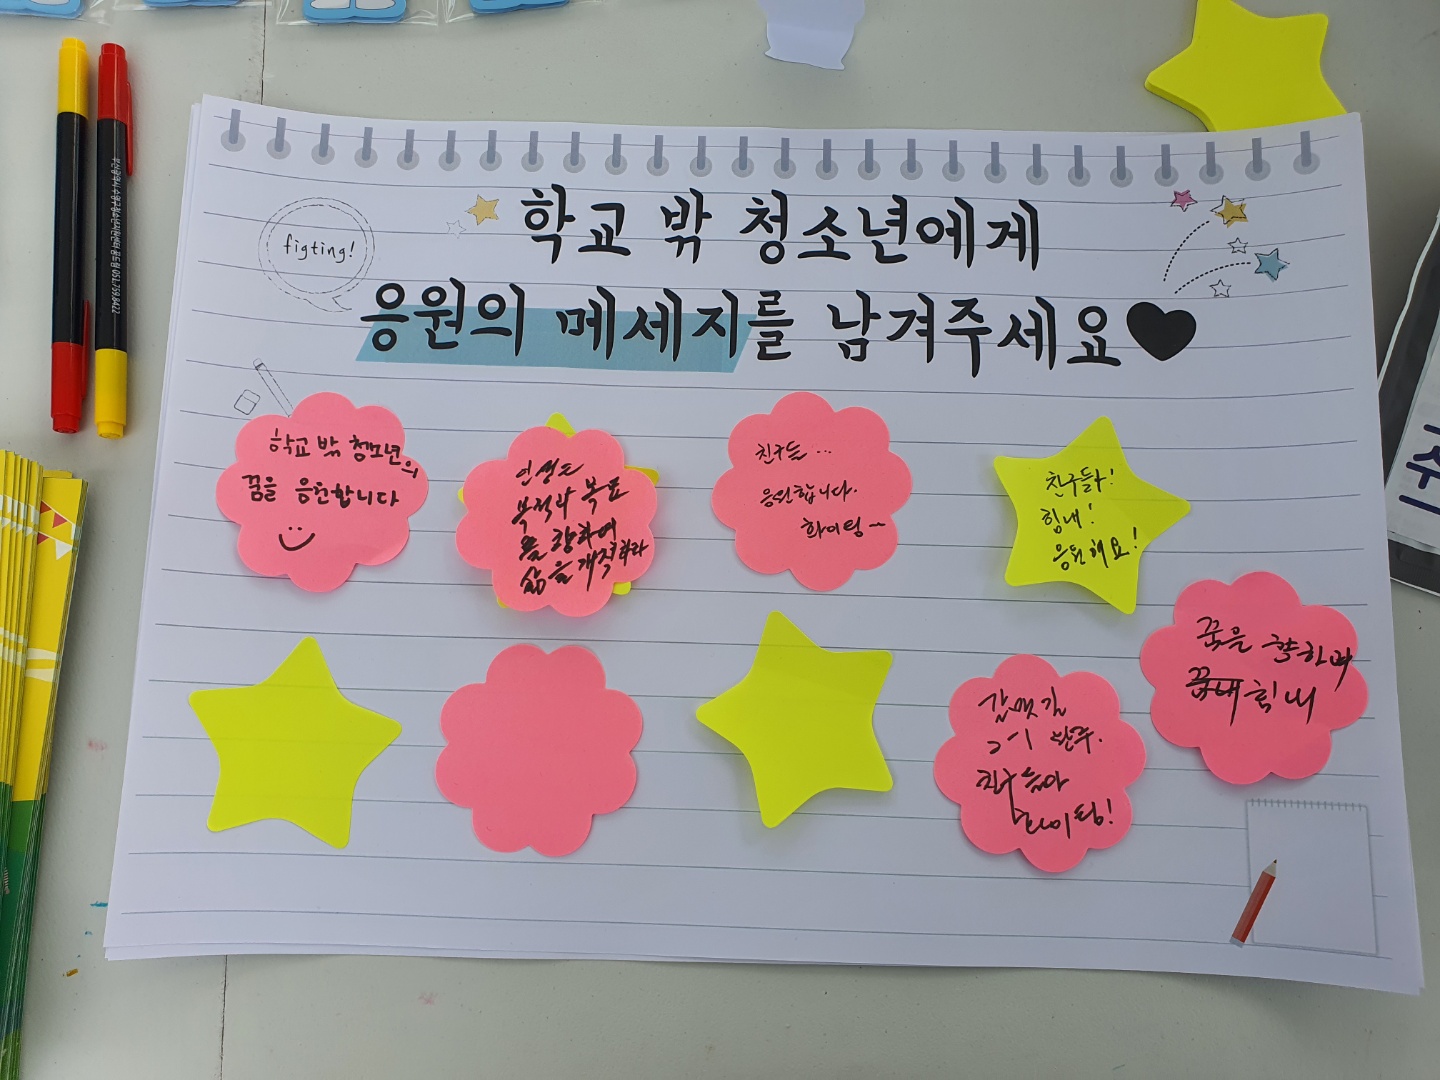 figting!
학교 밖 청소년에게
응원의 메세지를 남겨주세요
학교 밖 청소년의
꿈을 응원합니다
인생은
목적과 목표
를 향하여
삶을 개척하라
친구들...
응원합니다.
화이팅~
친구들아!
힘내!
응원해요!
꿈을 향하여
힘내
갈맷길
2-1 반주.
친구들아
화이팅!